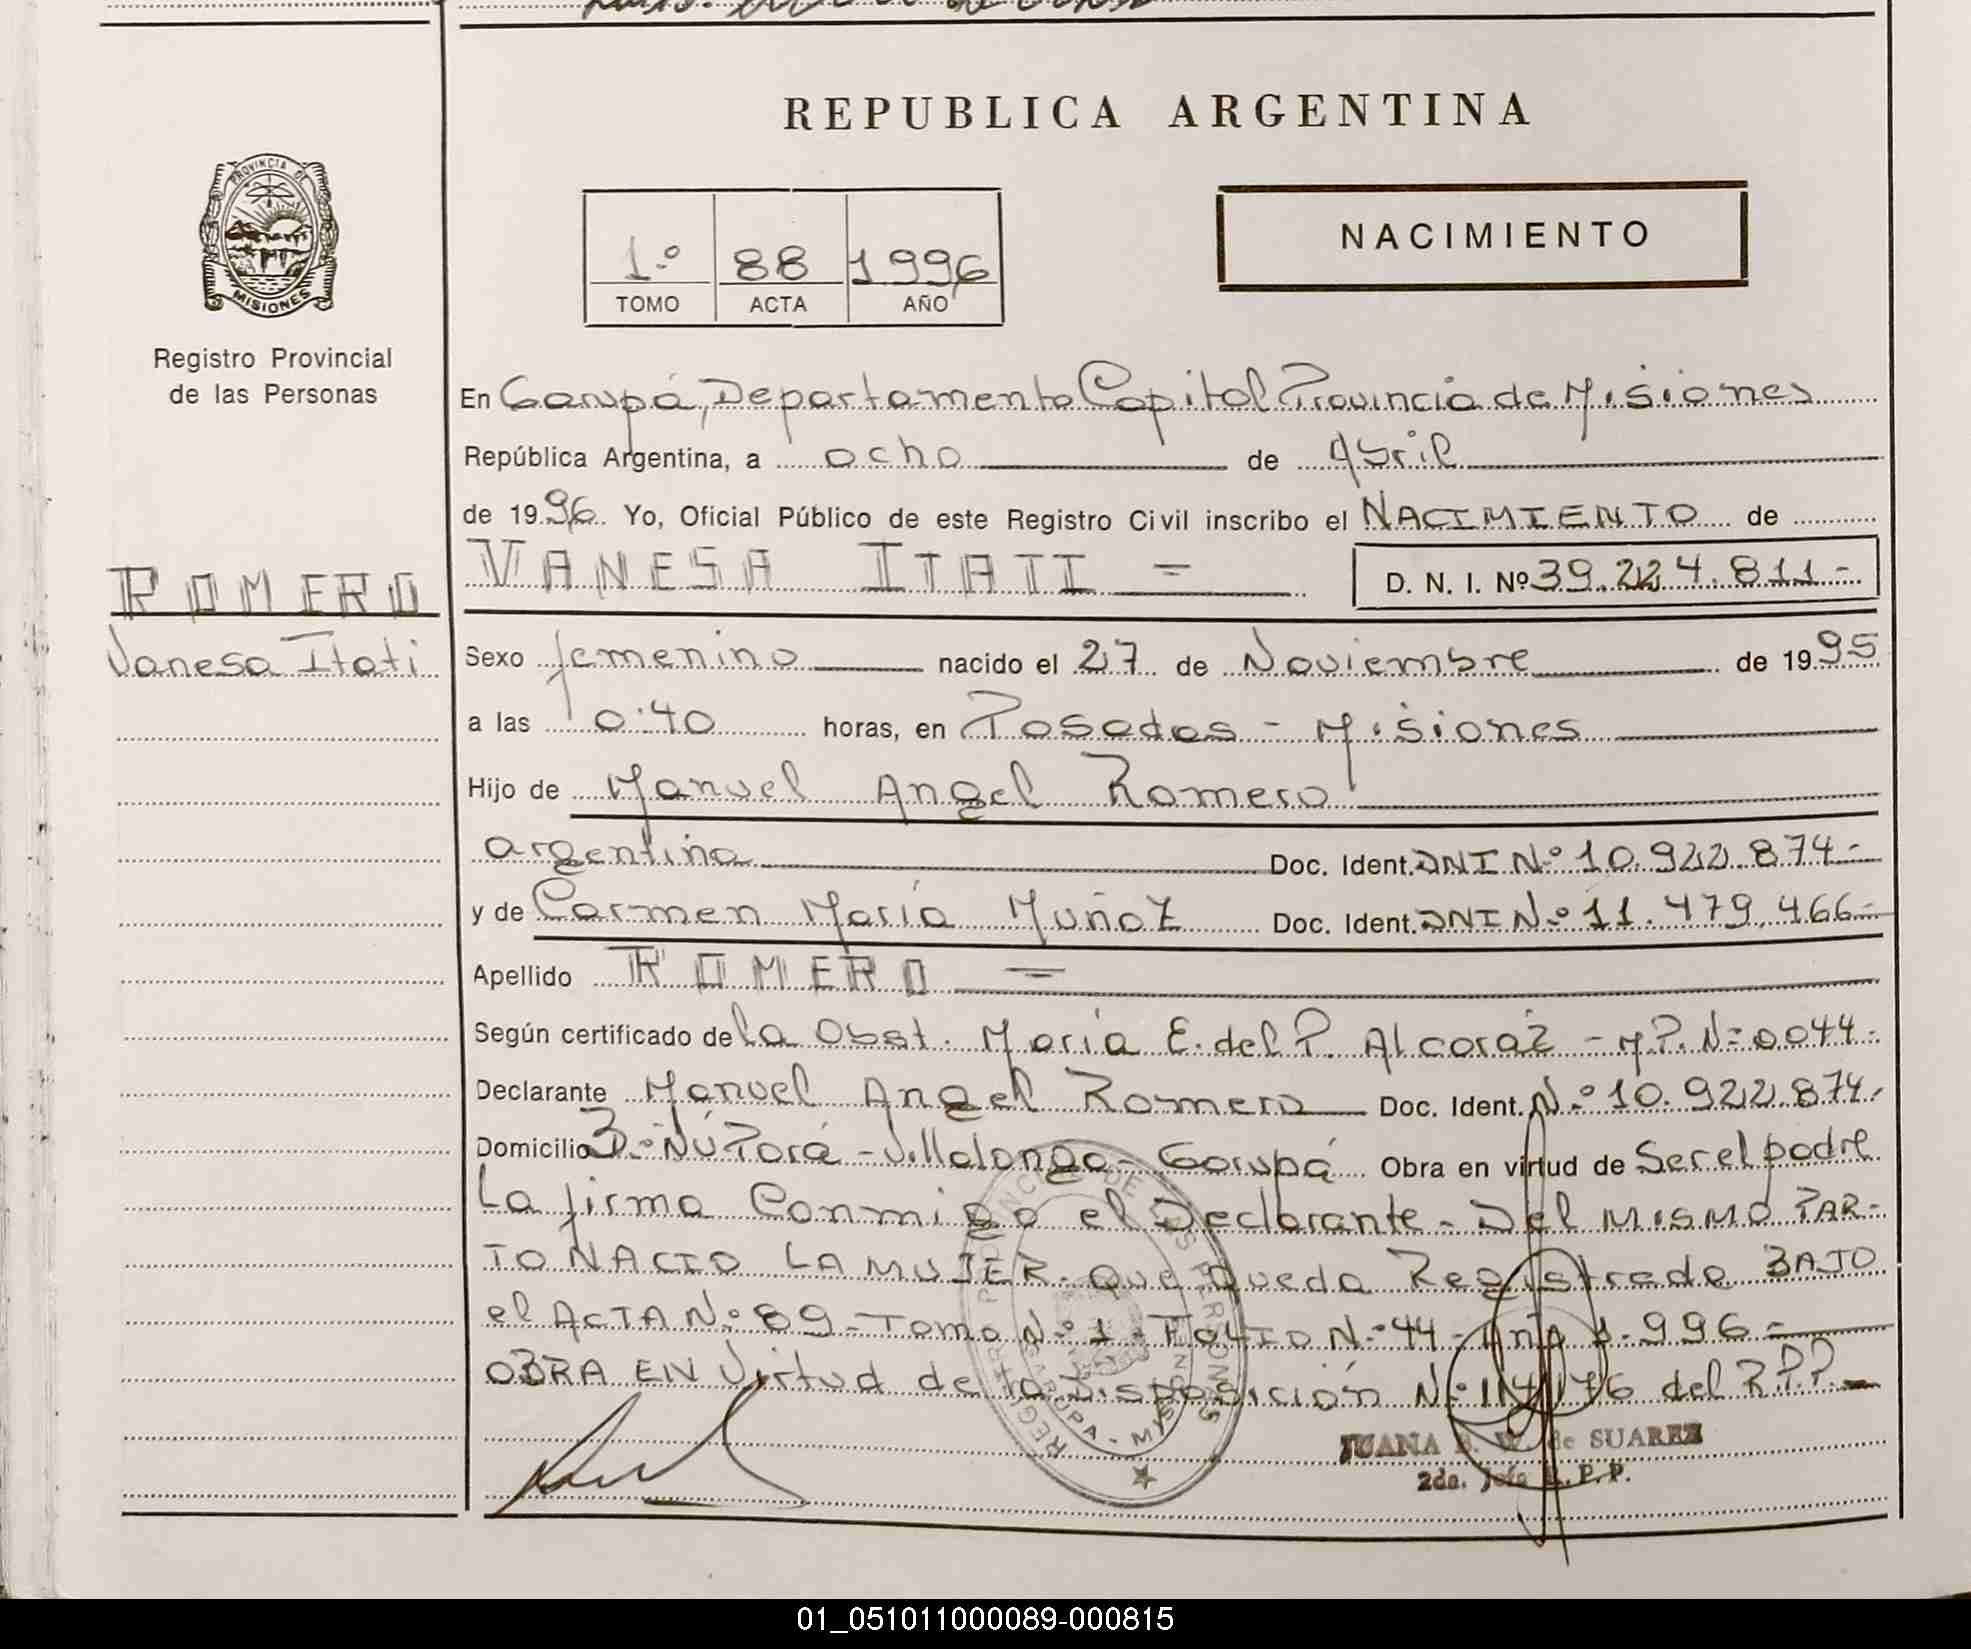 REPUBLICA ARGENTINA
PROVINCIA DE
MISIONES
Registro Provincial
de las Personas
1.º 88 1996
TOMO ACTA AÑO
NACIMIENTO
En Garupá, Departamento Capital Provincia de Misiones
República Argentina, a ocho de Abril
de 1996. Yo, Oficial Público de este Registro Civil inscribo el NACIMIENTO de
ROMERO
Vanesa Itati
VANESA ITATI = D. N. I. Nº 39.224.811-
Sexo femenino nacido el 27 de Noviembre de 1995
a las 0:40 horas, en Posadas - Misiones
Hijo de Manuel Angel Romero
argentino Doc. Ident. DNI Nº 10.922.874-
y de Carmen María Muñoz Doc. Ident. DNI Nº 11.479.466-
Apellido ROMERO =
Según certificado de la Obst. María E. del P. Alcoraz - M.P. Nº 0044-
Declarante Manuel Angel Romero Doc. Ident. Nº 10.922.874-
Domicilio Bº Ñú Porá - Villalonga - Garupá Obra en virtud de Ser el padre
La firma Conmigo el Declarante - Del MISMO PAR-
TO NACIO LA MUJER que queda Registrada BAJO
el ACTA Nº 89 - Tomo Nº 1 - FOLIO Nº 44 - Año 1.996 -
OBRA EN Virtud de la Disposición Nº 117/76 del R.P.P -
JUANA de SUAREZ
2da. Jefa R. P. P.
01_051011000089-000815